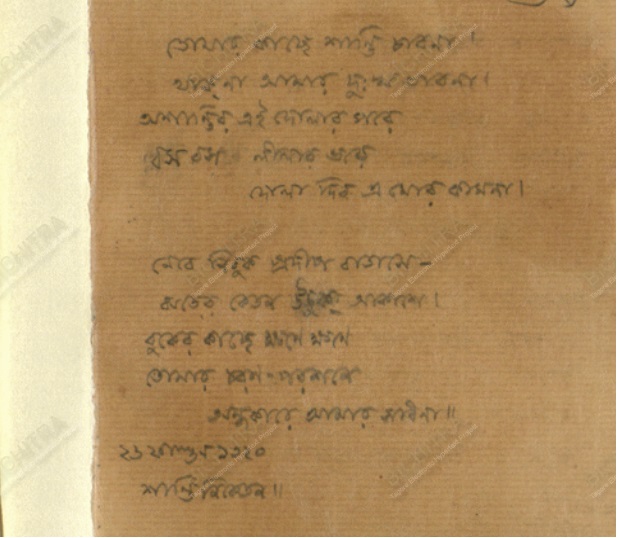 তোমার কাছে শান্তি চাবনা।
থাক্‌না আমার দুঃখ ভাবনা।
অশান্তির এই দোলার পরে
বোস বোস লীলার ভরে
দোলা দিব এ মোর কামনা।
নেবে নিবুক প্রদীপ বাতাসে –
ঝড়ের কেতন উড়ুক আকাশে।
বুকের কাছে ক্ষণে ক্ষণে
তোমার চরণ-পরশনে
অন্ধকারে আমার সাধনা॥
২৬ ফাল্গুন ১৩২০
শান্তিনিকেতন॥